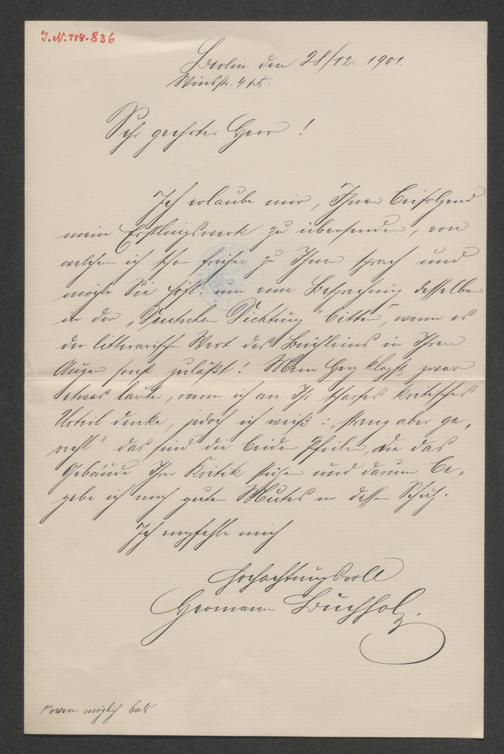 J.N. 114.836
Berlin den 28/12. 1901.
Sehr geehrter Herr!
Ich erlaube mir, Ihnen beifolgend
mein Erstlingswerk zu übersenden, von
welchem ich schon früher zu Ihnen sprach und
möchte Sie höfl. um eine Besprechung desselben
in der „Deutschen Dichtung“ bitten, wenn es
der litterarische Wert des Büchleins in Ihren
Augen sonst zuläßt! Mein Herz klopft zwar
etwas lauter, wenn ich an Ihr scharfes kritisches
Urteil denke, jedoch ich weiß: „streng aber ge-
recht“ das sind die beiden Pfeiler, die das
Gebäude Ihrer Kritik stützen und darum be-
gebe ich mich guten Mutes in dessen Schutz.
Ich empfehle mich
Hochachtungsvoll
Hermann Buchholz.
möglich